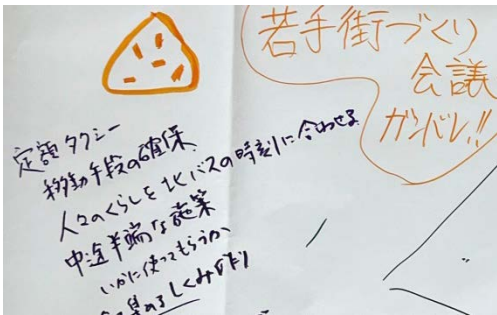 若手街づくり
会議
ガンバレ!!
定額タクシー
移動手段の確保
人々のくらしをバスの時刻に合わせる
中途半端な施策
いかに使ってもらうか、
集めるしくみ作り